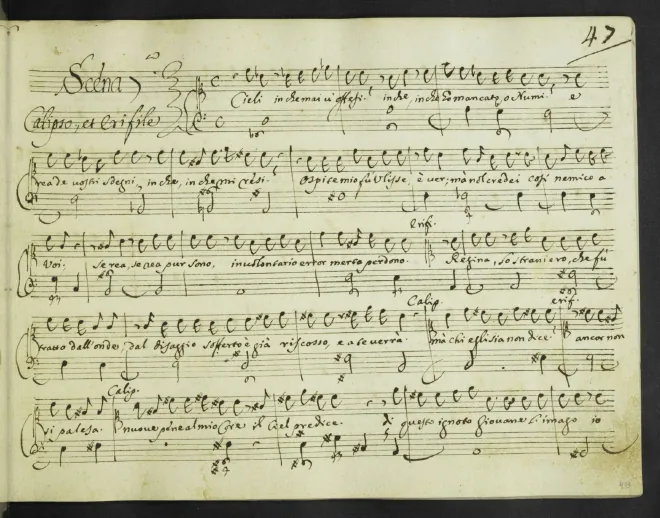 47
Scena
Calipso, et Erifile
Cieli in che mai v'offesi? in che, in che ho mancato, o Numi? e
rea de vostri sdegni, in che, in che mi resi? Ospite mio fu Ulisse, è ver, mà nol credei così nemico a
Voi; se rea, se rea pur sono, involontario error merta perdono. Erif. Regina, lo straniero, che fù
tratto dall'onde, dal disaggio sofferto è già riscosso, e a te verrà. Calip. mà chi egli sia non dice? erif. ancor non
si palesa. Calip. nuove pene al mio Core il Ciel predice. di questo ignoto Giovane l'imago io